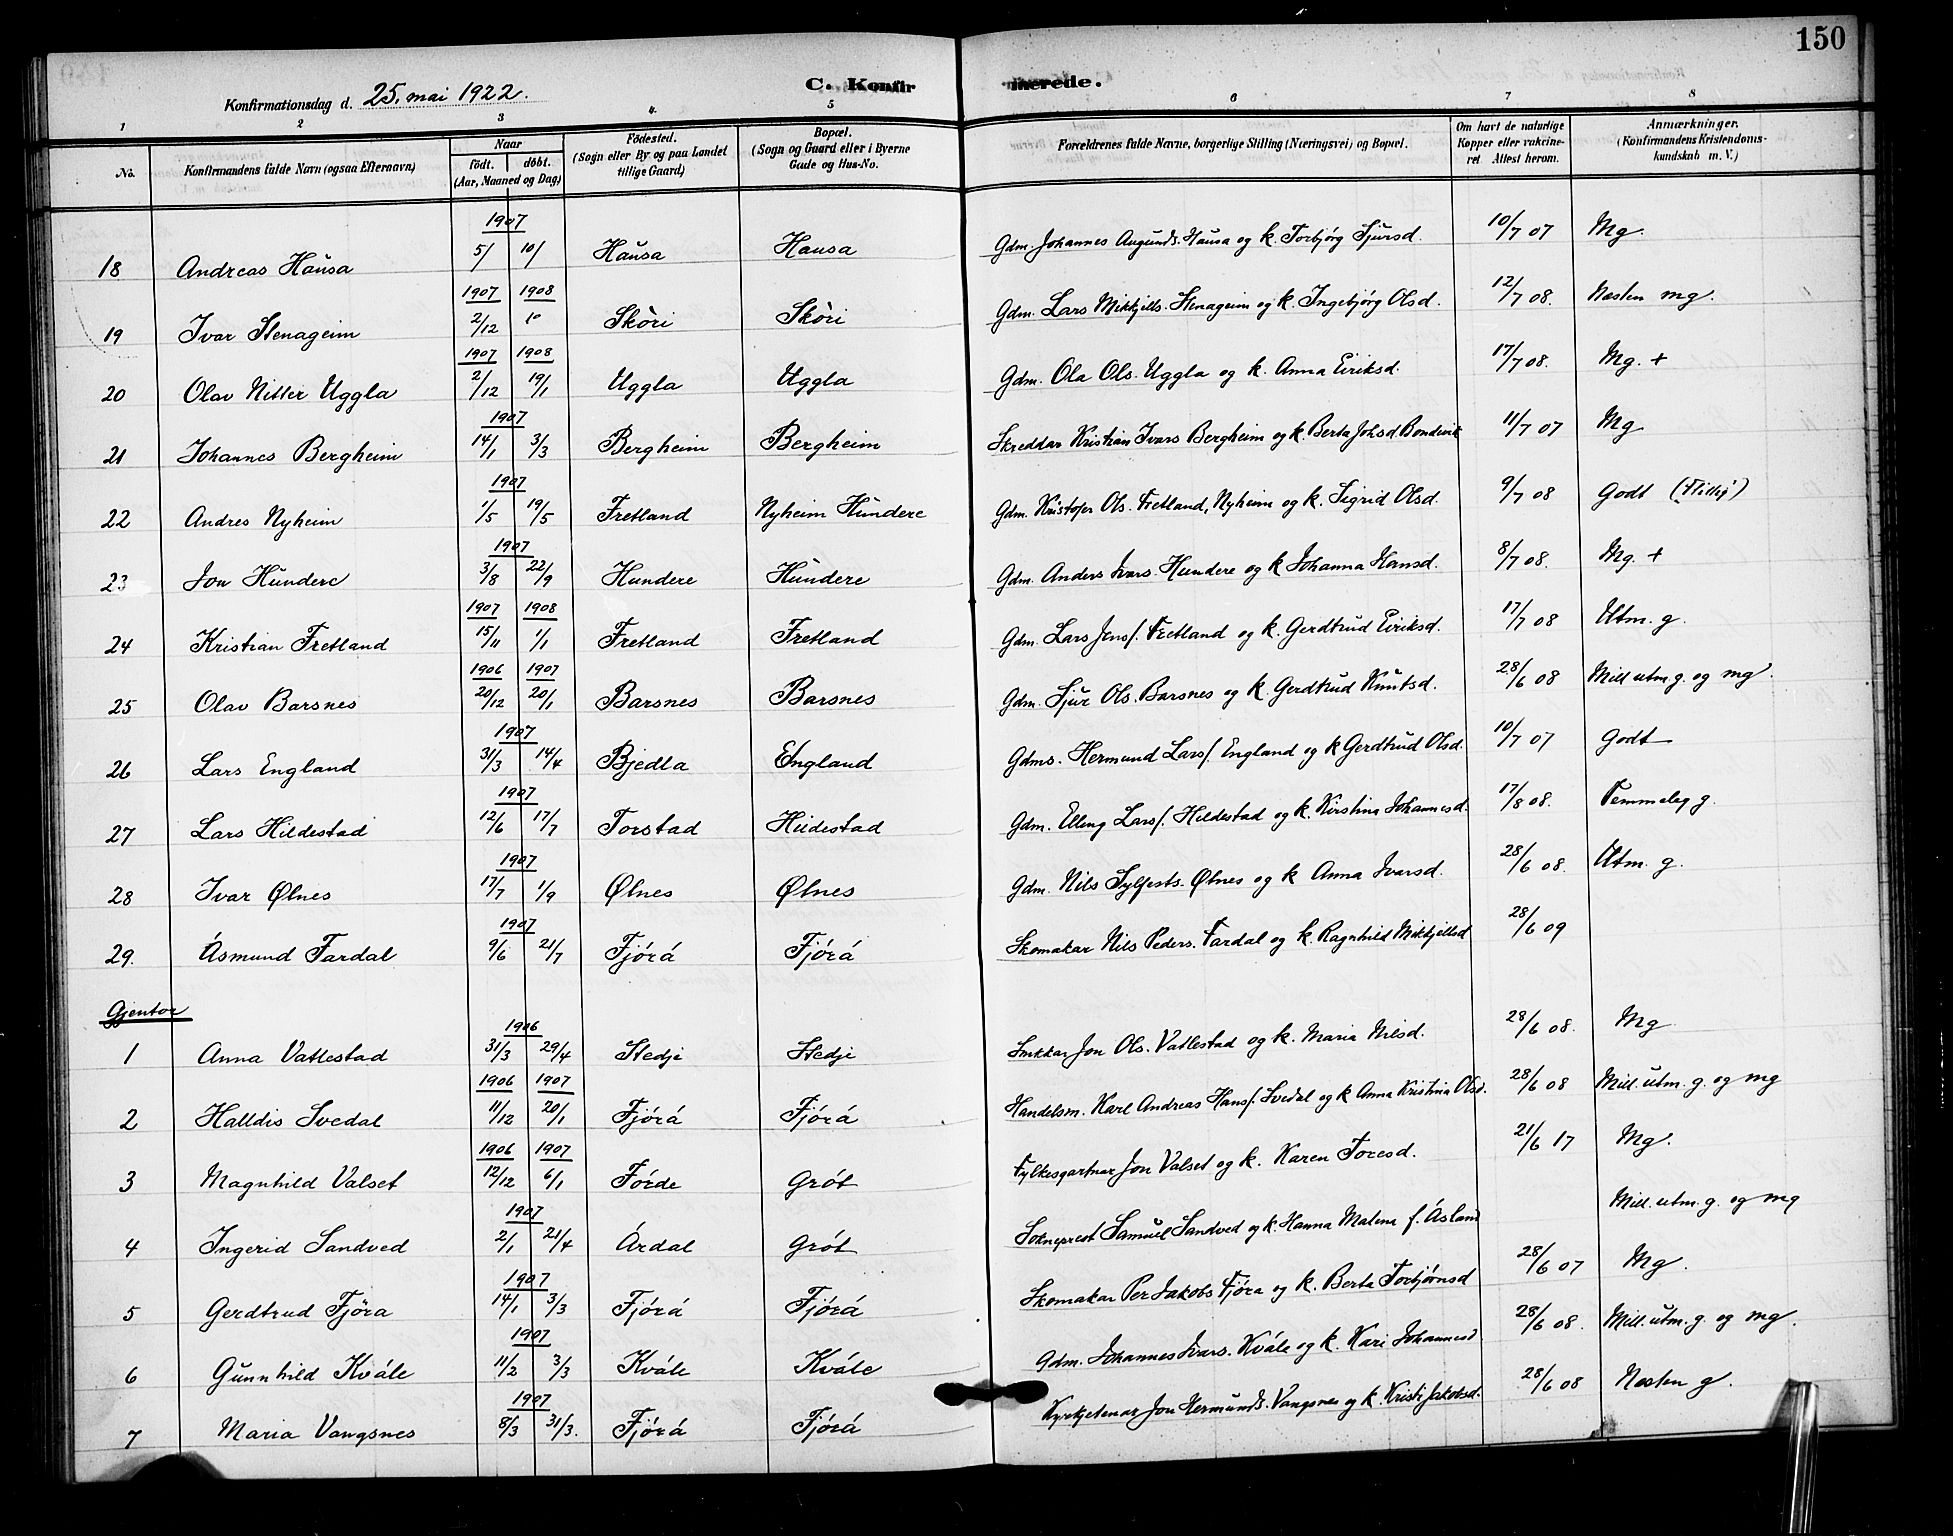 150
Konfirmationsdag d. 25. mai 1922.
C. Konfirmerede.
1 2 3 4. 5 6 7 8
No.
Konfirmandens fulde Navn (ogsaa Efternavn)
Naar
født. døbt.
(Aar, Maaned og Dag)
Fødested.
(Sogn eller By og paa Landet
tillige Gaard)
Bopæl.
(Sogn og Gaard eller i Byerne
Gade og Hus-No.
Forældrenes fulde Navne, borgerlige Stilling (Næringsvei) og Bopæl.
Om havt de naturlige
Kopper eller vakcine-
ret. Attest herom.
Anmærkninger.
(Konfirmandens Kristendoms-
kundskab m. V.)
1907
18 Andreas Hausa 5/ 10/ Hausa Hausa Gdm. Johannes Augunds. Hausa og k. Torbjørg Sjursd. 10/7 07 Mg.
1907 1908
19 Ivar Stenageim 2/12 10 Skòri Skòri Gdm. Lars Mikkjells. Stenageim og k. Ingebjørg Olsd. 12/7 08. Næsten mg.
1907 1908
20 Olav Nitter Uggla 2/12 19/1 Uggla Uggla Gdm. Ola Ols. Uggla og k. Anna Eiriksd. 17/7 08. Mg. +
1907
21 Johannes Bergheim 14/1 3/3 Bergheim Bergheim Skreddar Kristian Ivars Bergheim og k. Berta Johsd. Bondevik 11/7 07 Mg
1907
22 Andres Nyheim 1/5 19/5 Fretland Nyheim Hundere Gdm. Kristofer Ols. Fretland, Nyheim og k. Sigrid Olsd. 9/7 08 Godt
1907
23 Jon Hundere 3/8 22/9 Hundere Hundere Gdm. Anders Ivars. Hundere og k Johanna Hansd. 8/7 08. Mg. +
1907 1908
24 Kristian Fretland 15/11 1/1 Fretland Fretland Gdm. Lars Jens/. Fretland og k. Gerdtrud Eiriksd. 17/7 08 Utm. g.
1906 1907
25 Olav Barsnes 20/12 20/1 Barsnes Barsnes Gdm. Sjur Ols. Barsnes og k. Gerdtrud Knutsd. 28/6 08 Mill utm. g. og mg.
1907
26 Lars England 31/3 14/4 Bjedla England Gdms. Hermund Lars/. England og k Gerdtrud Olsd. 10/7 07 Godt
1907
27 Lars Hildestad 12/6 17/7 Torstad Hildestad Gdm. Elling Lars/. Hildestad og k. Kirstina Johannesd. 17/8 08. Temmeleg g.
1907
28 Ivar Ølnes 17/7 1/9 Ølnes Ølnes Gdm. Nils Sylfests. Ølnes og k Anna Ivarsd. 28/6 08. Utm. g.
1907
29. Åsmund Fardal 9/6 21/7 Fjórá Fjórá Skomakar Nils Peders. Fardal og k. Ragnhild Mikkjellsd 28/6 09
Gjentor
1906
1 Anna Vatlestad 31/3 29/4 Stedje Stedje Snikkar Jon Ols. Vatlestad og k. Maria Nilsd. 28/6 08. Mg
1906 1907
2 Halldis Svedal 11/12 20/1 Fjórá Fjórá Handelsm. Karl Andreas Hans/. Svedal og k Anna Kristina Olsd. 28/6 08 Mill. utm. g. og mg
1906 1907
3 Magnhild Valset 12/12 6/1 Førde Grót Fylkesgartnar Jon Valset og k. Karen Toresd. 21/6 17 Mg.
1907
4 Ingerid Sandved 2/1 21/4 Årdal Grót Sokneprest Samuel Sandved og k. Hanna Malena f. Åsland Mill. utm. g. og mg
1907
5 Gerdtrud Fjöra 14/1 3/3 Fjórá Fjórá Skomakar Per Jakobs Fjóra og k. Berta Torbjórnsd 28/6 07 Mg.
1907
6 Gunnhild Kvále 11/2 3/3 Kvále Kvále Gdm. Johannes Ivars. Kvále og k. Kari Johannesd 28/6 08. Mill. utm. g. og mg.
1907
7 Maria Vangsnes 8/3 31/3. Fjórá Fjórá Kyrkjetenar Jon Hermunds. Vangsnes og k. Kristi Jakobsd. 28/6 08 Næsten g.